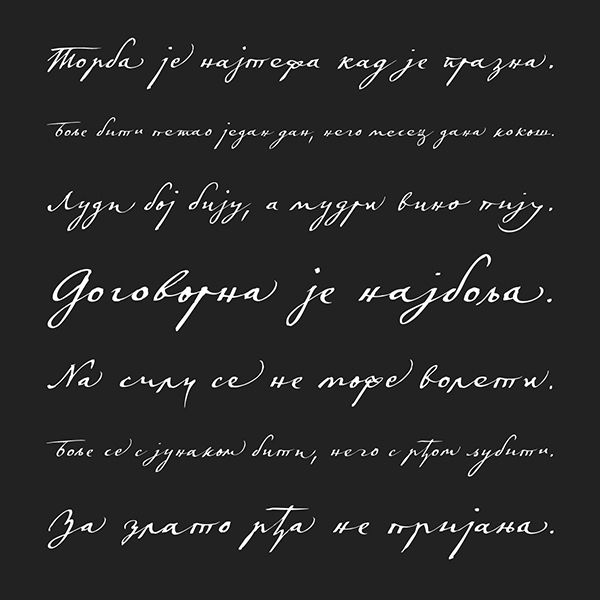 Торба је најтежа кад је празна.
Боље бити петао један дан, него месец дана кокош.
Луди бој бију, а мудри вино пију.
Договорна је најбоља.
На силу се не може волети.
Боље се с јунаком бити, него с рђом љубити.
За злато рђа не пријања.